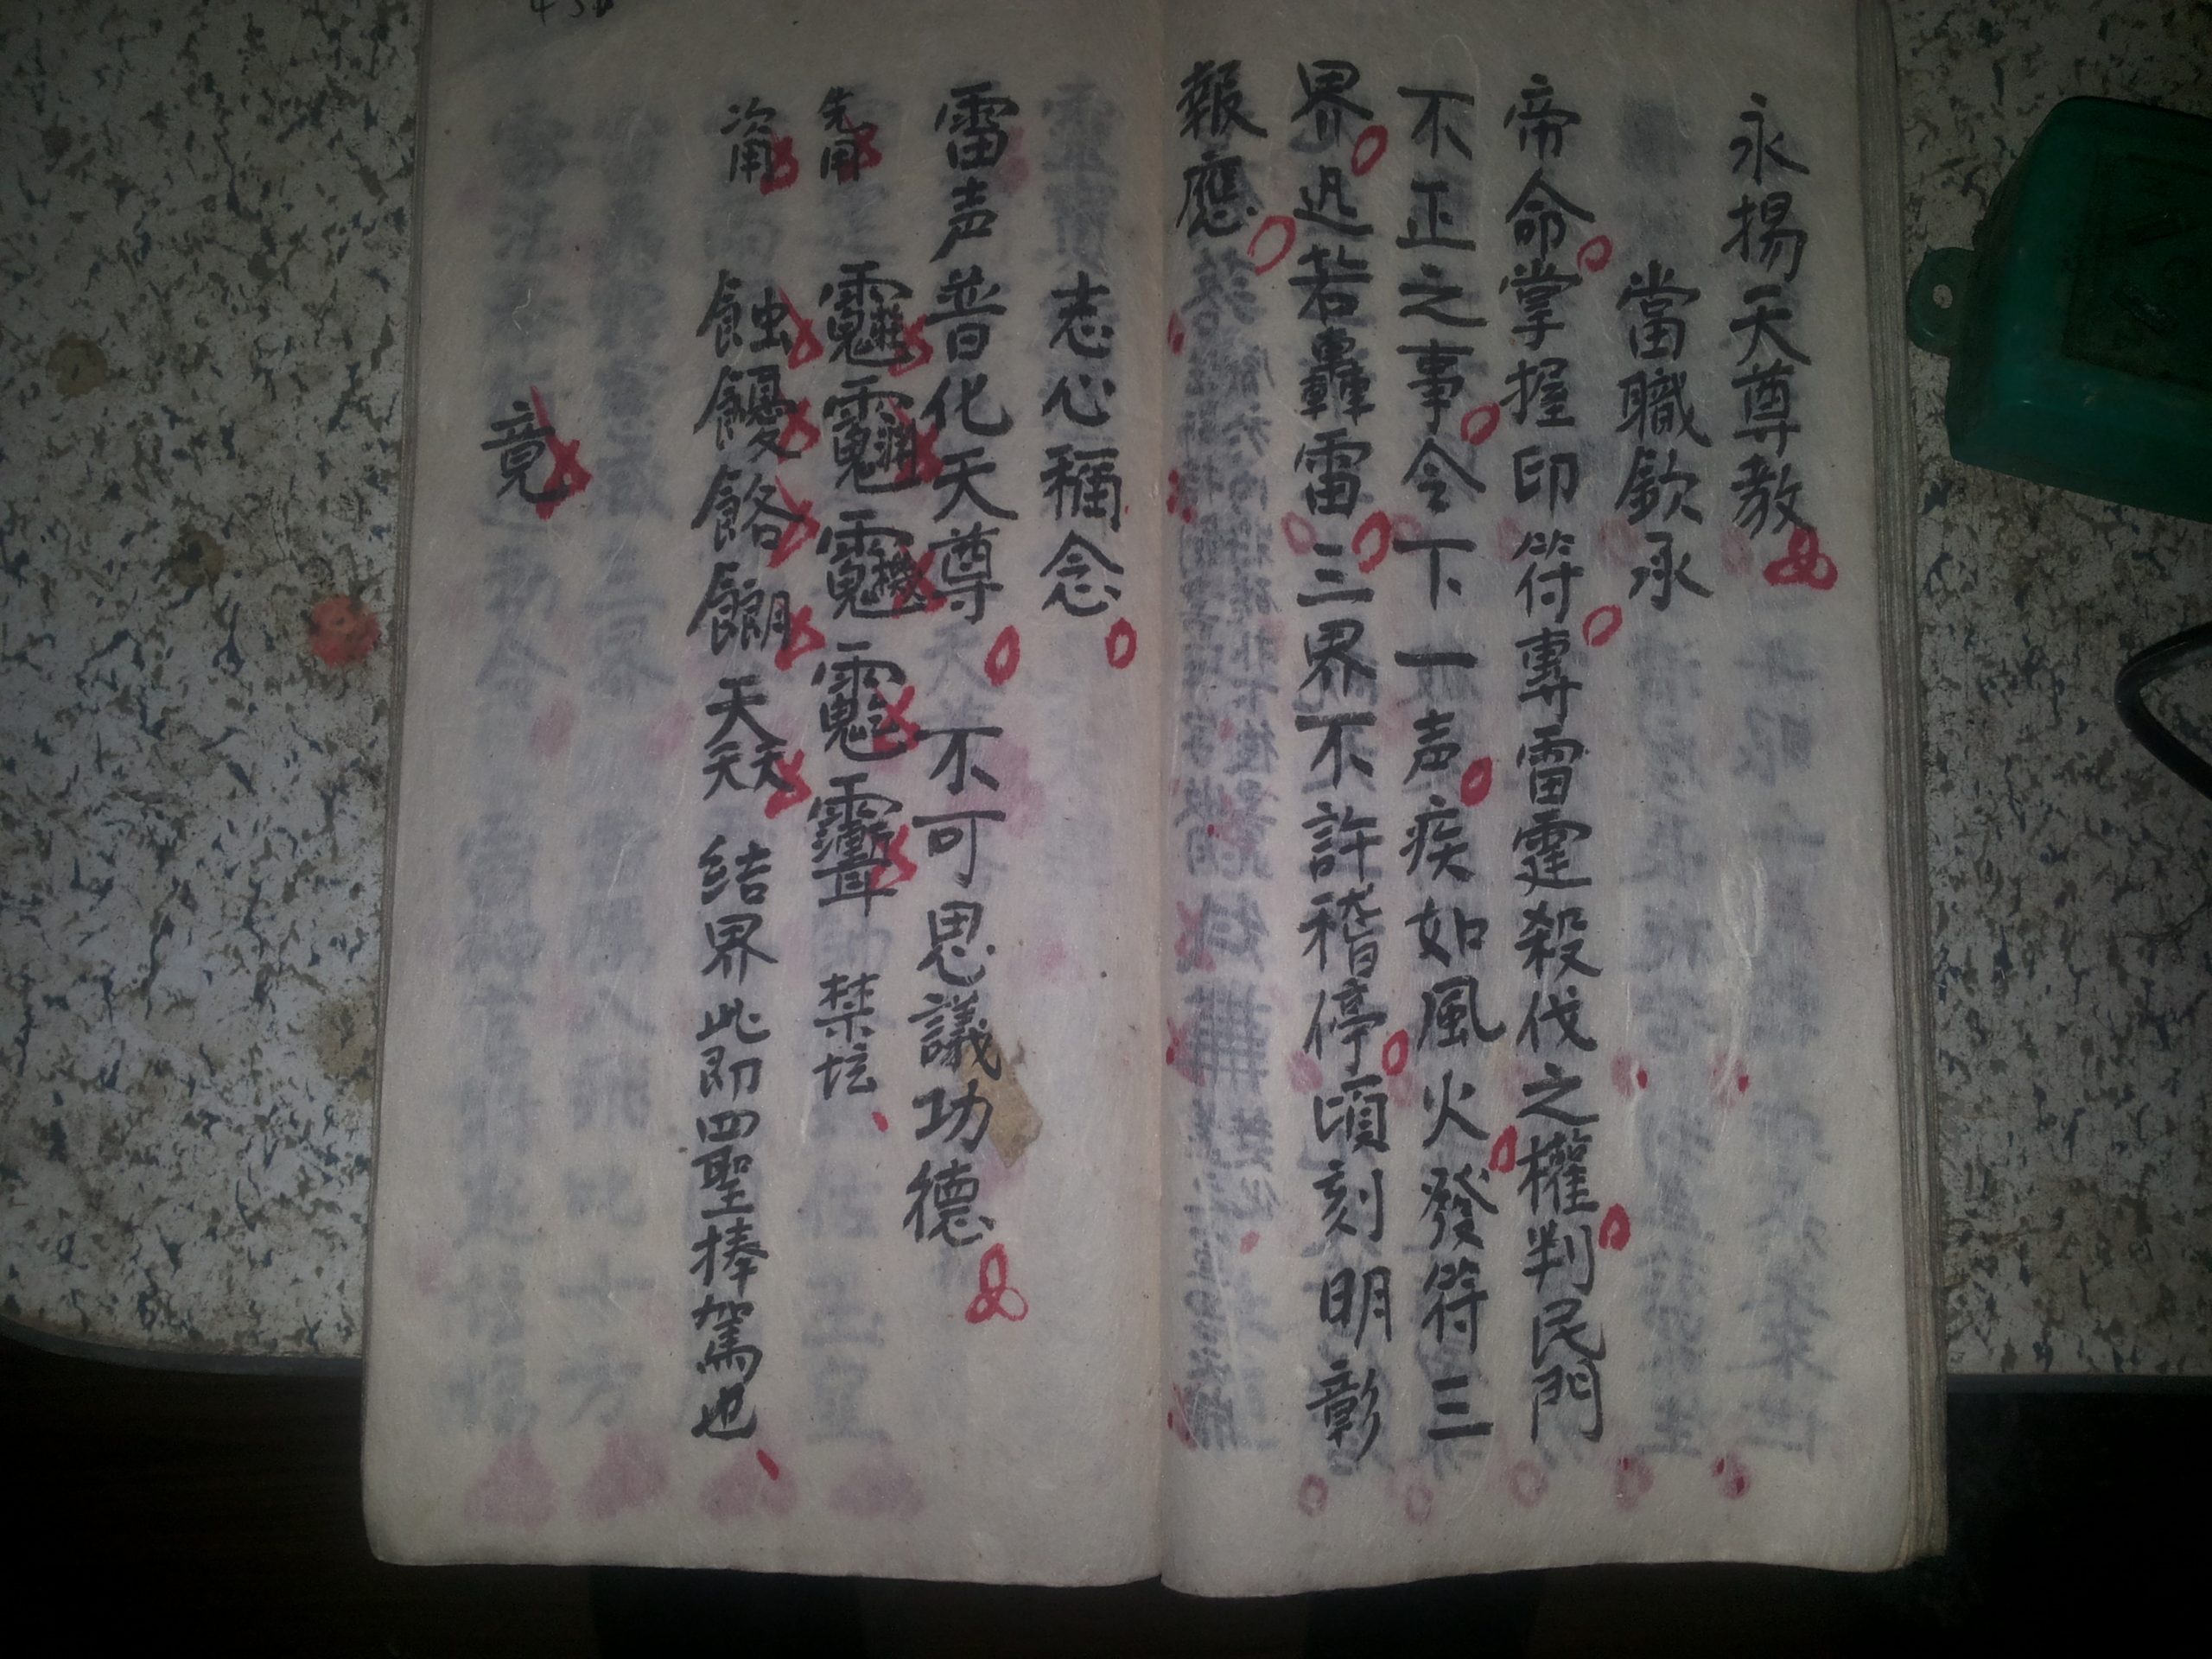 永揚天尊教
當職欽承
帝命掌握印符專雷霆殺伐之權判民門
不正之事令下一声疾如風火發符三
界迅若轟雷三界不許稽停頃刻明彰
報應
志心稱念
雷声普化天尊 不可思議功德
先用 禁坛
次用 蝕 結界此即四聖捧駕也
竟